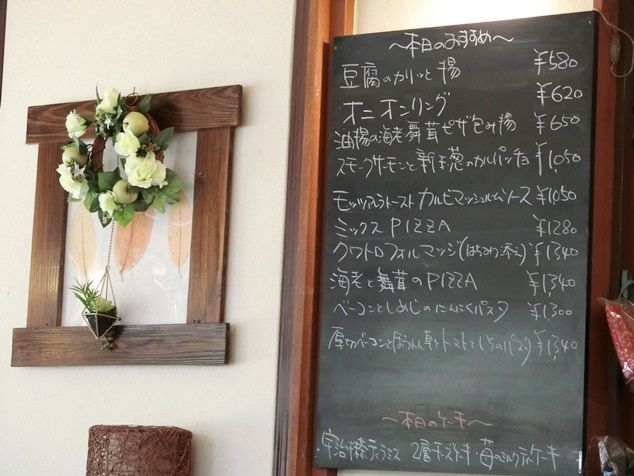 ～本日のおすすめ～
豆腐のカリッと揚 ¥580
オニオンリング ¥620
油揚の海老舞茸ピザ包み揚 ¥650
スモークサーモンと新玉葱のカルパッチョ ¥1,050
モッツァレラトースト カルビマッシュルームソース ¥1050
ミックスPIZZA ¥1280
クワトロフォルマッジ(はちみつ添え) ¥1,340
海老と舞茸のPIZZA ¥1,340
ベーコンとしめじのにんにくパスタ ¥1,300
厚切ベーコンとほうれん草とトマトとしめじのパスタ ¥1,340
～本日のケーキ～
宇治抹茶ティラミス 2層チーズケーキ 苺のミルクティケーキ